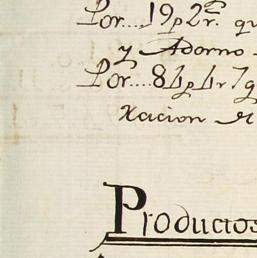 Por.... 19p 2r. qu
y Adorno
Por.... 84p 4r 7q
xacion de
Productos